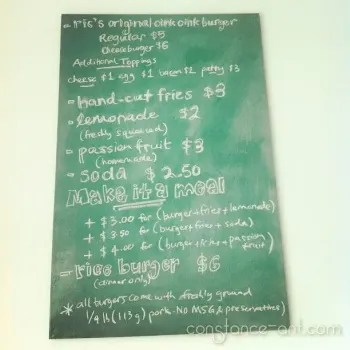 - iris's original oink oink burger
Regular $5
Cheeseburger $6
Additional Toppings
cheese $1 egg $1 bacon $2 patty $3
- hand-cut fries $3
- lemonade $2
(freshly squeezed)
- passion fruit $3
(homemade)
- soda $2.50
Make it a meal
+ $3.00 for (burger+fries+lemonade)
+ $3.50 for (burger+fries+soda)
+ $4.00 for (burger+fries+passion
fruit)
- rice burger $6
(dinner only)
* all burgers come with freshly ground
1/4 lb (113g) pork. No MSG & preservatives)
constance-ant.com